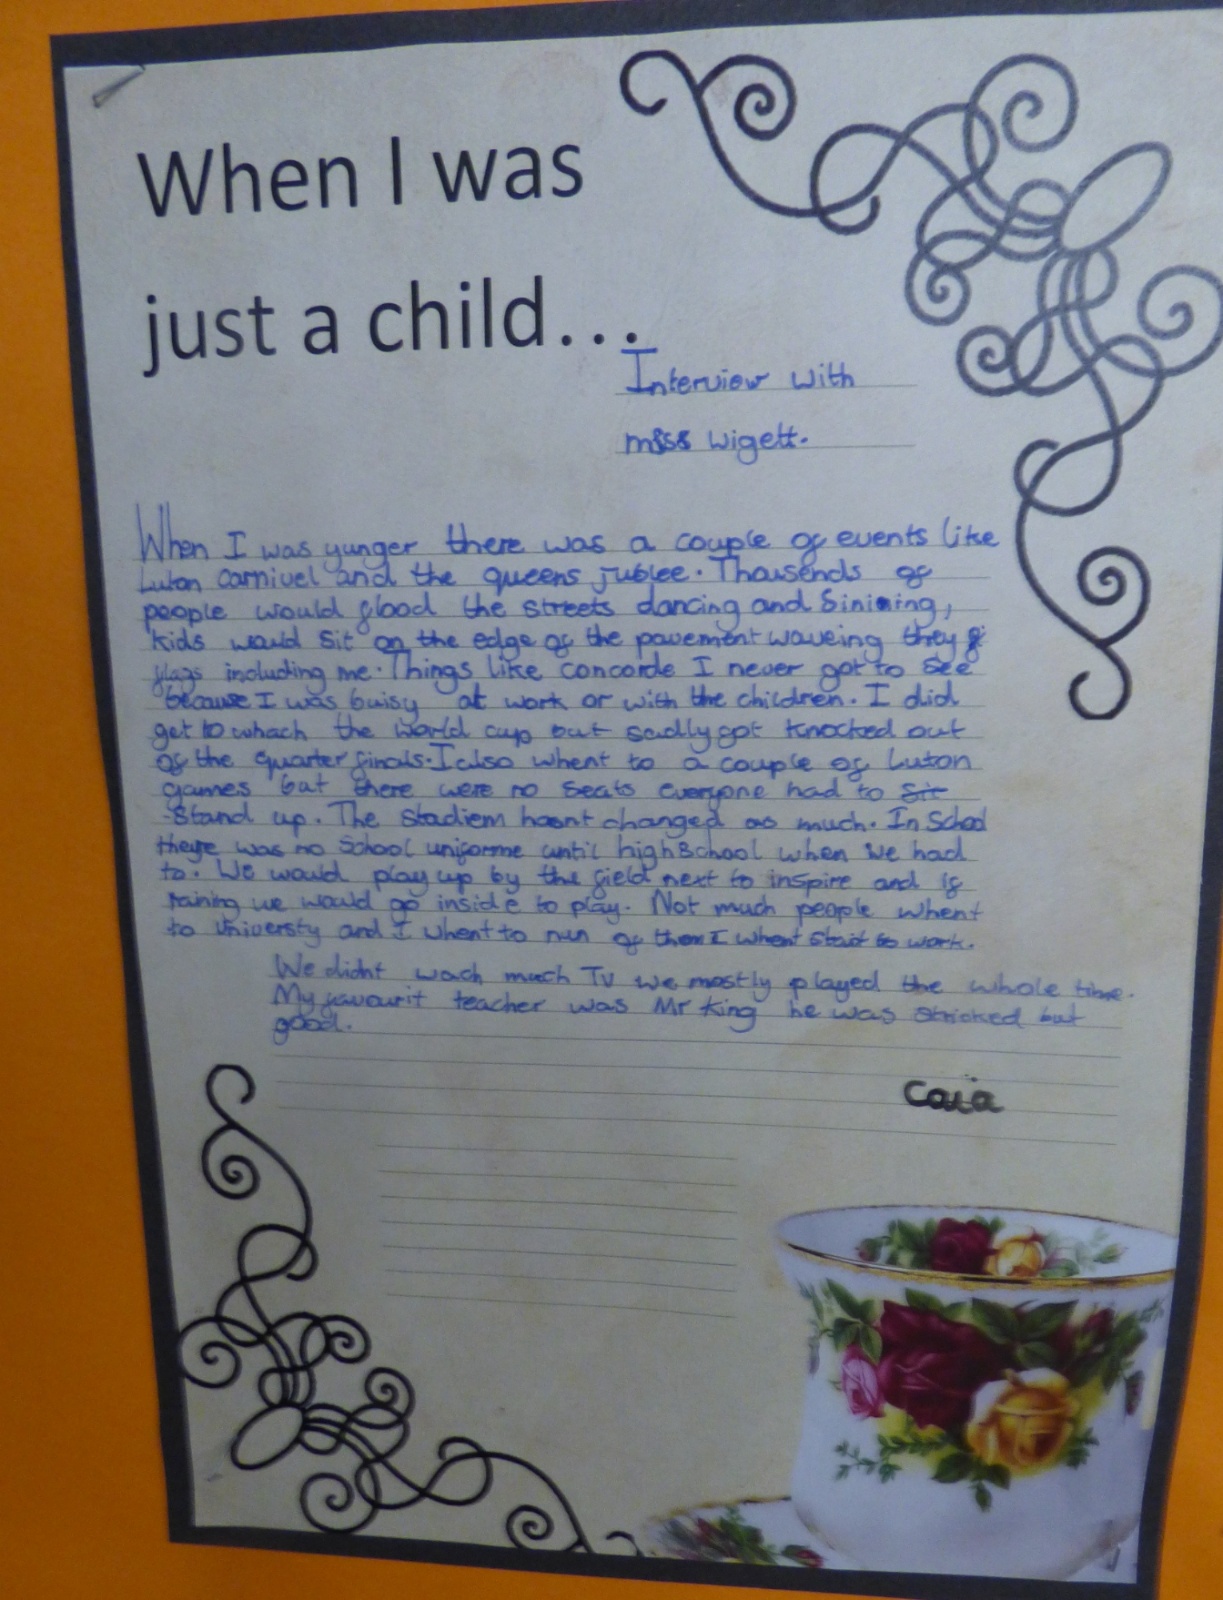 When I was
just a child...
Interview with
miss wigett.
When I was yunger there was a couple of events like
Luton carnivel and the queens jublee. Thousends of
people would flood the streets dancing and sinining,
kids would sit on the edge of the pavement waveing they
flags including me. Things like concorde I never got to see
because I was buisy at work or with the children. I did
get to whach the world cup but sadly got knocked out
of the quarter finals. I also whent to a couple of Luton
games but there were no seats everyone had to sit
stand up. The stadiem hasnt changed as much. In School
theye was no school uniforme until high school when we had
to. We would play up by the field next to inspire and if
raining we would go inside to play. Not much people whent
to universty and I whent to nun of them I whent strait to work.
We didnt wach much Tv we mostly played the whole time.
My favourit teacher was Mr King he was stricked but
good.
Caia